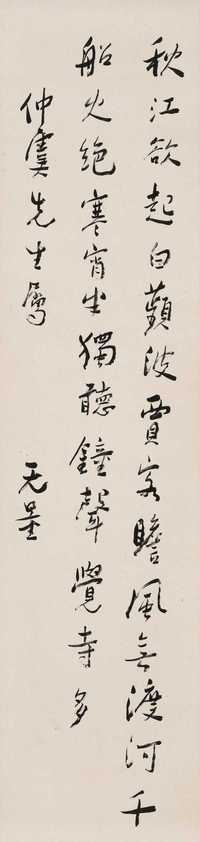 秋江欲起白蘋波賈客瞻風無渡河千
船火絕寒宵坐獨聽鐘聲覺寺多
仲虞先生屬
无量